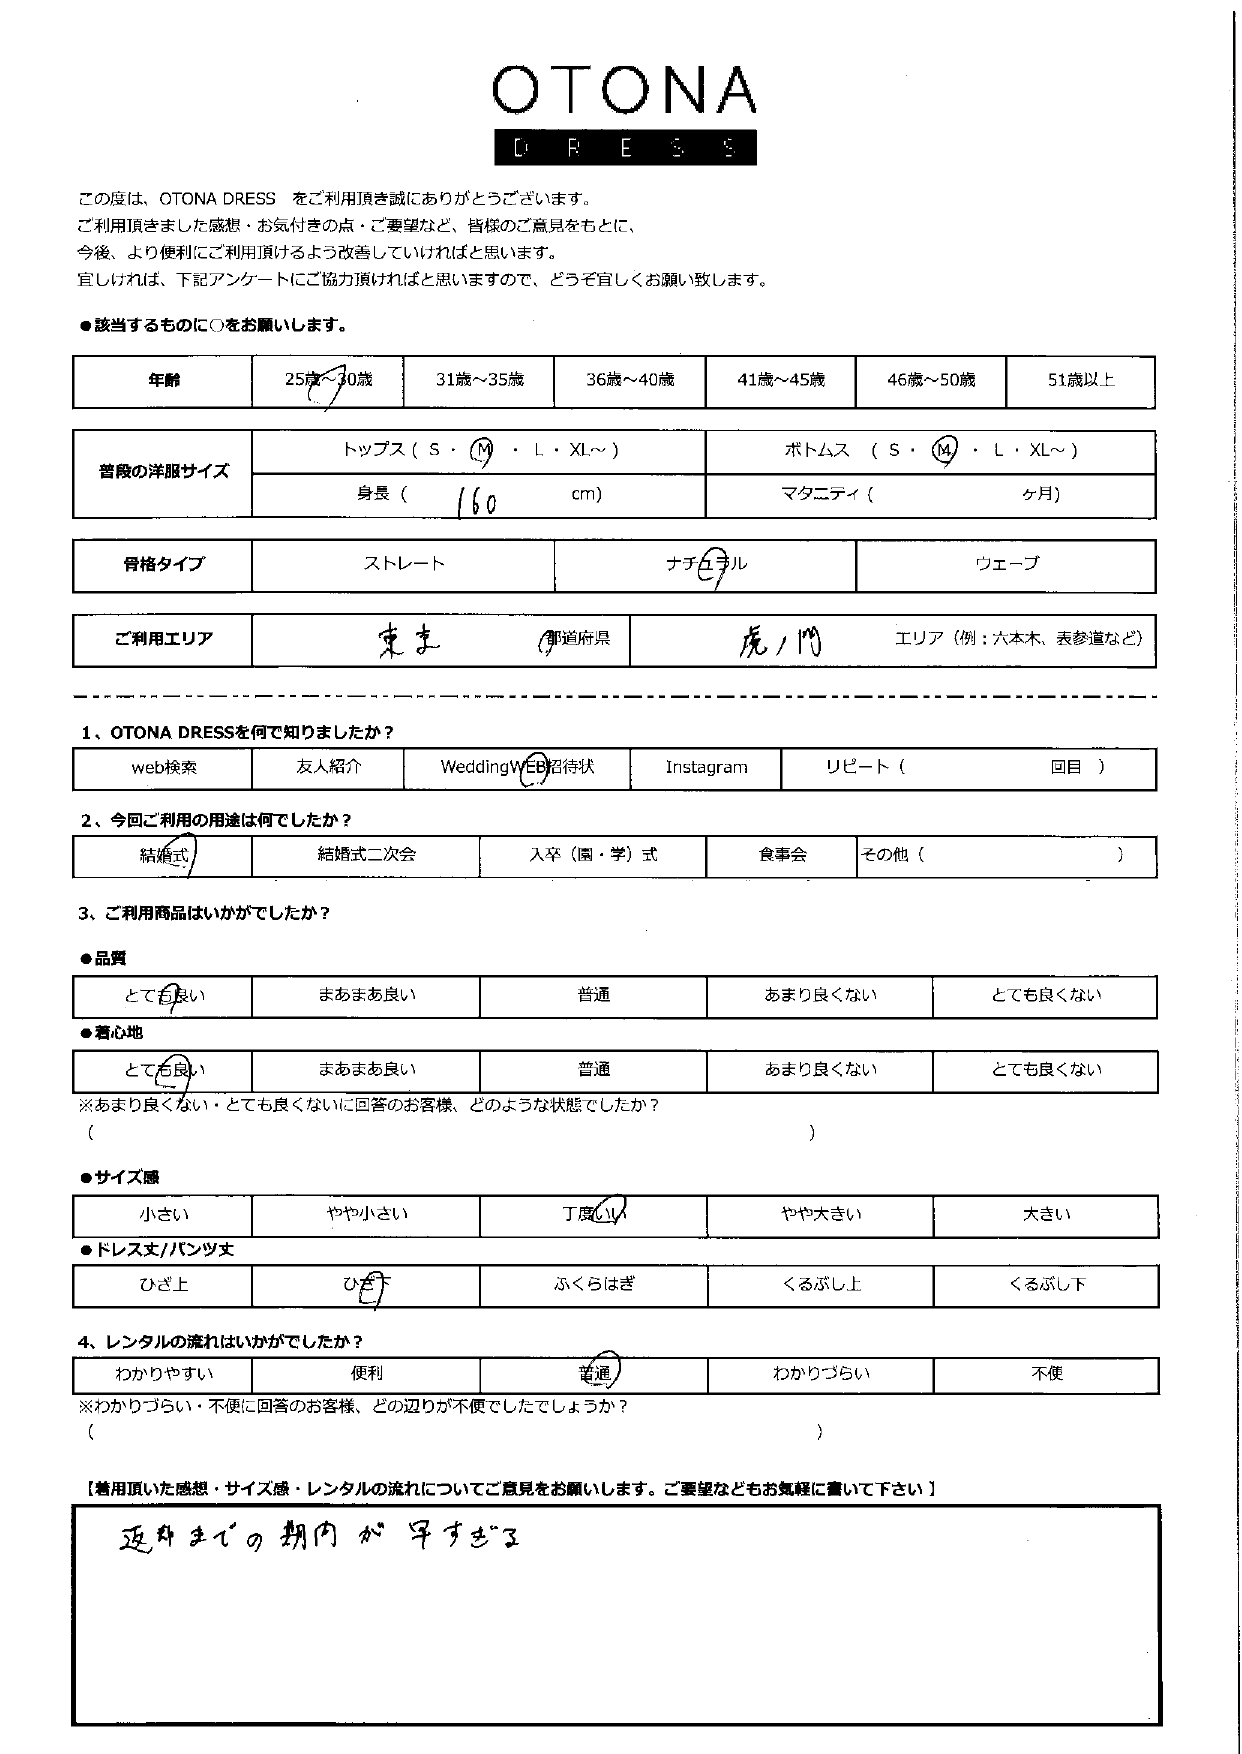 OTONA
DRESS
この度は、OTONA DRESS　をご利用頂き誠にありがとうございます。
ご利用頂きました感想・お気付きの点・ご要望など、皆様のご意見をもとに、
今後、より便利にご利用頂けるよう改善していければと思います。
宜しければ、下記アンケートにご協力頂ければと思いますので、どうぞ宜しくお願い致します。
●該当するものに○をお願いします。
年齢 25歳～30歳 31歳～35歳 36歳～40歳 41歳～45歳 46歳～50歳 51歳以上
普段の洋服サイズ
トップス ( S ・ M ・ L ・ XL～ ) ボトムス ( S ・ M ・ L ・ XL～ )
身長 ( 160 cm) マタニティ ( ヶ月)
骨格タイプ ストレート ナチュラル ウェーブ
ご利用エリア 東京 都道府県 虎ノ門 エリア（例：六本木、表参道など）
1、OTONA DRESSを何で知りましたか？
web検索 友人紹介 WeddingWEB招待状 Instagram リピート（ 回目 ）
2、今回ご利用の用途は何でしたか？
結婚式 結婚式二次会 入卒（園・学）式 食事会 その他（ ）
3、ご利用商品はいかがでしたか？
●品質
とても良い まあまあ良い 普通 あまり良くない とても良くない
●着心地
とても良い まあまあ良い 普通 あまり良くない とても良くない
※あまり良くない・とても良くないに回答のお客様、どのような状態でしたか？
( )
●サイズ感
小さい やや小さい 丁度いい やや大きい 大きい
●ドレス丈/パンツ丈
ひざ上 ひざ下 ふくらはぎ くるぶし上 くるぶし下
4、レンタルの流れはいかがでしたか？
わかりやすい 便利 普通 わかりづらい 不便
※わかりづらい・不便に回答のお客様、どの辺りが不便でしたでしょうか？
( )
【着用頂いた感想・サイズ感・レンタルの流れについてご意見をお願いします。ご要望などもお気軽に書いて下さい】
返却までの期内が早すぎる